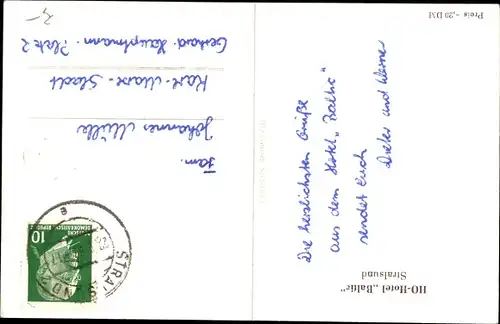 HO-Hotel „Baltic"
Stralsund
Die herzlichsten Grüße
aus dem Hotel „Baltic"
sendet Euch
Dieter und Werner
Preis -,20 DM
3,-
Fam.
Johannes Müller
Karl-Marx-Stadt
Gerhard-Hauptmann-Platz 2
10
DEUTSCHE
DEMOKRATISCHE REPUBLIK
STRALSUND
e